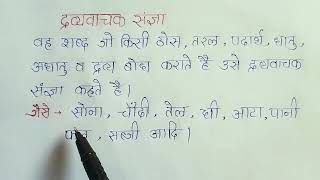 द्रव्यवाचक संज्ञा
वह शब्द जो किसी ठोस, तरल, पदार्थ, धातु,
अधातु व द्रव्य बोध कराते है उसे द्रव्यवाचक
संज्ञा कहते है।
जैसे → सोना, चाँदी, तेल, घी, आटा, पानी
फल, सब्जी आदि।